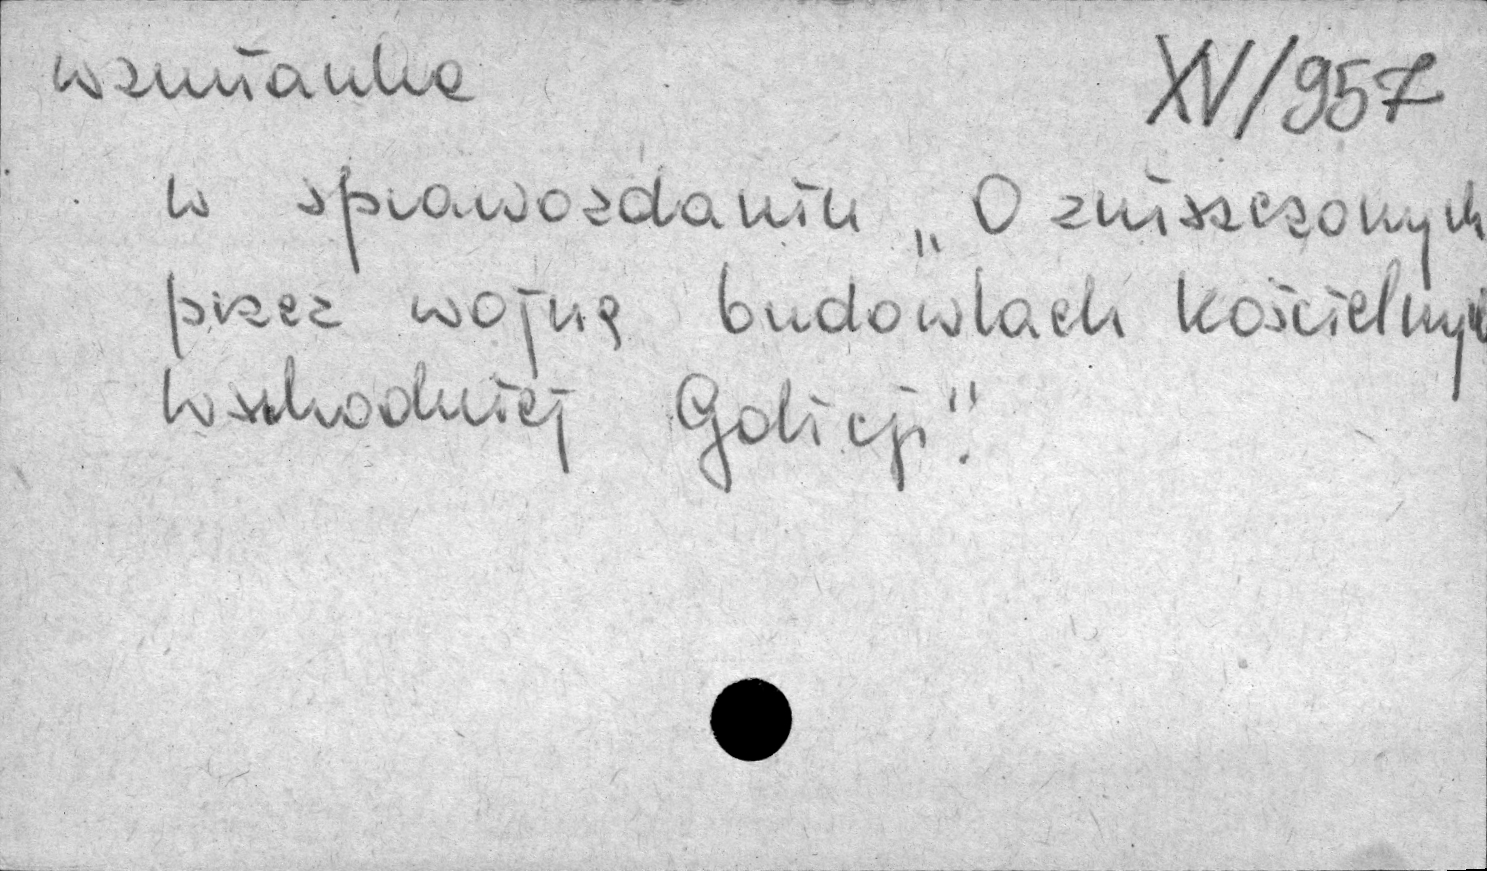 wzmianka XV/957
w sprawozdaniu „O zniszczonych
przez wojnę budowlach kościelnych
Wschodniej Galicji".